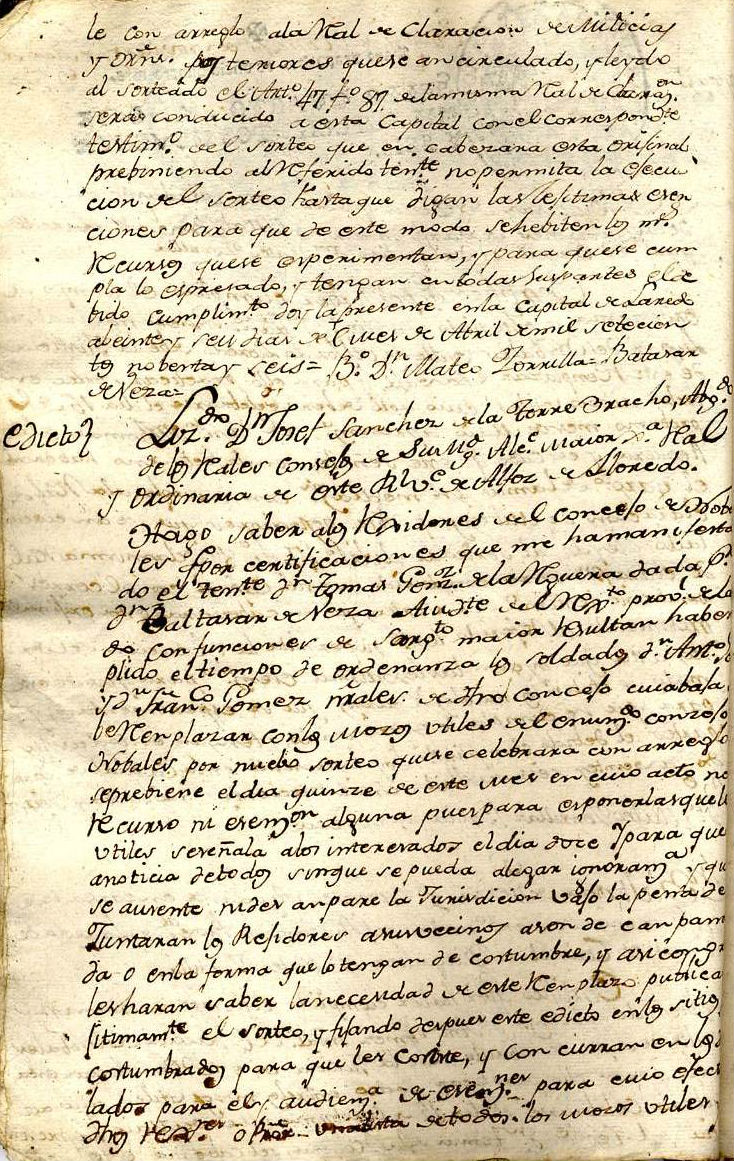 le con arreglo ala Ral de Claracion de Milicias
y orñs. posteriores que se an circulado, y leydo
al sorteado el Arto. 47 fo. 87 de la misma Ral de Claraon.
sera conducido a esta Capital con el correspondte
testimo. del sorteo que en cabezara esta orisinal
prebiniendo al Referido tente. no permita la efecu
cion del sorteo hasta que digan las lesitimas esen
ciones para que de este modo se hebiten los ms.
Recursos que se esperimentan, y para que se cum
pla lo espresado, y tengan en todas sus partes el de
bido cumplimto doy la presente en la Capital de Laredo
a beinte y seis dias del mes de Abril de mil setecien
tos nobenta y seis = Bo. Dn Mateo Torrilla = Batasar
de Veza =
Edicto}
Lizdo. Dn Josef Sanchez de la Torre Bracho, Abogdo
de los Reales Consejos de Su Mg. Alce. Maior Ral
y ordinaria de este Rl Ve. de Alfoz de Lloredo.
Hago saber a los Residores del conceso de Noba
les q por certificaciones que me ha manifesta
do el tente dn Tomas Gonz. de la Noguera dada Pr
dn Baltasar de Veza Aiudte del Rexto. provl. de La
do con funciones de Sargto maior Resultan haber
plido el tiempo de ordenanza los soldados dn Anto.
y dn Franco Gomez nrales. de dho conceso cuia basa
be Renplazar con los mozos utiles del enumdo. conzeso
Nobales por nuebo sorteo que se celebrara con arreglo
se prebiene el dia quinze de este mes en cuio acto no
Recurso ni esemon alguna pues para esponerlas que le
utiles se señala a los interesados el dia doce y para que
a noticia de todos sin que se pueda alegar ignorama y que
se ausente ni des anpare la Jurisdicion vaso la pena de
Juntaran los Residores a sus vecinos a son de canpam
da o en la forma que lo tengan de costumbre, y asi congr
les haran saber la necesidad de este Renplazo, publica
sitimamte el sorteo, y fijando despues este edicto en los sitios
costumbrados para que les conste, y con curran en los
lados para el y audiema de esemnes para cuio efec
dhos Resres o una lista de todos los mozos utiles